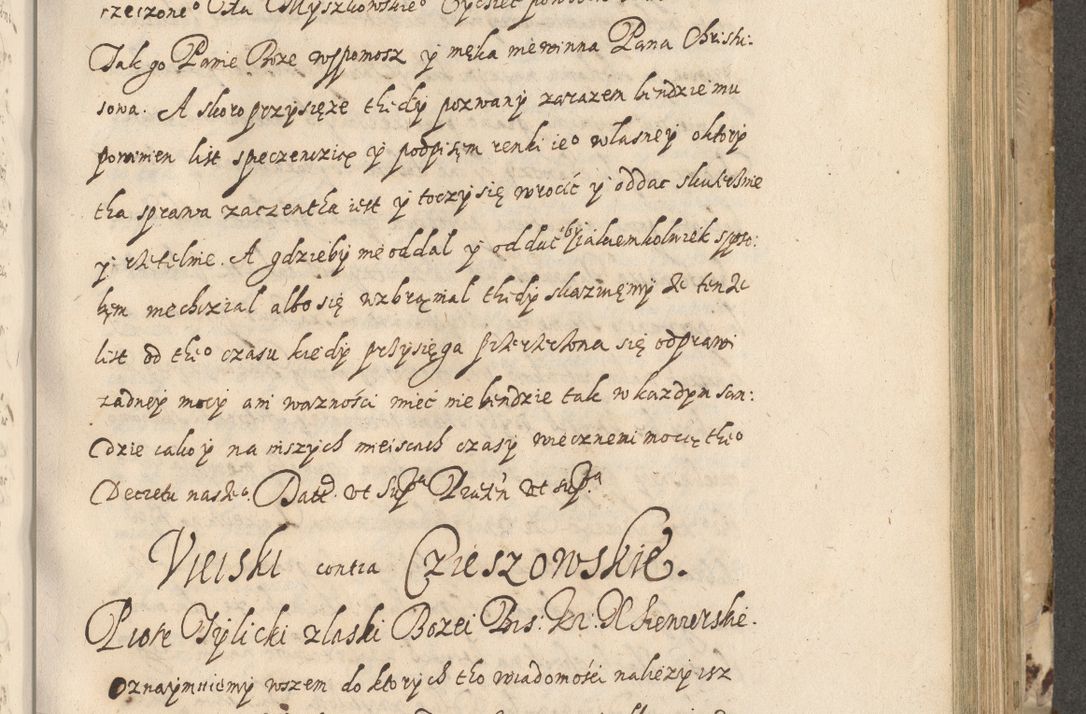 rzeczone° Sta Myszkowskie°
Tak go Panie Boze wspomosz y męka niewinna Pana Christu:
sowa. A skoro przysięże thedy pozwany zarazem bendzie mu
powinien list speczencziọ y podpisęm renki ie° własney oktory
tha sprawa zaczentha iest y toczy się wrocić y oddac skutecznie
y rzetelnie. A gdzieby nie oddał y oddac by iakiemkolwiek sposo:
bęm niechcział albo się wzbraniał thedy skazuięmy że tenże
list od the° czasu kiedy przysięga przerzeczona się odprawi
zadney mocy ani wazności mieć nie bendzie tak w kazdym san:
dzie iako y na inszych mieiscach czasy wiecznemi mocę the°
Decretu nasze°. Datt. vt supra Prae[n]t vt supra
Vieiski contra Czieszowskie.
Piotr Tylicki zlaski Bozei Bis: Kr: X Siewierskie.
Oznaymuiemy wszem do ktorych tho wiadomości nalezy isz